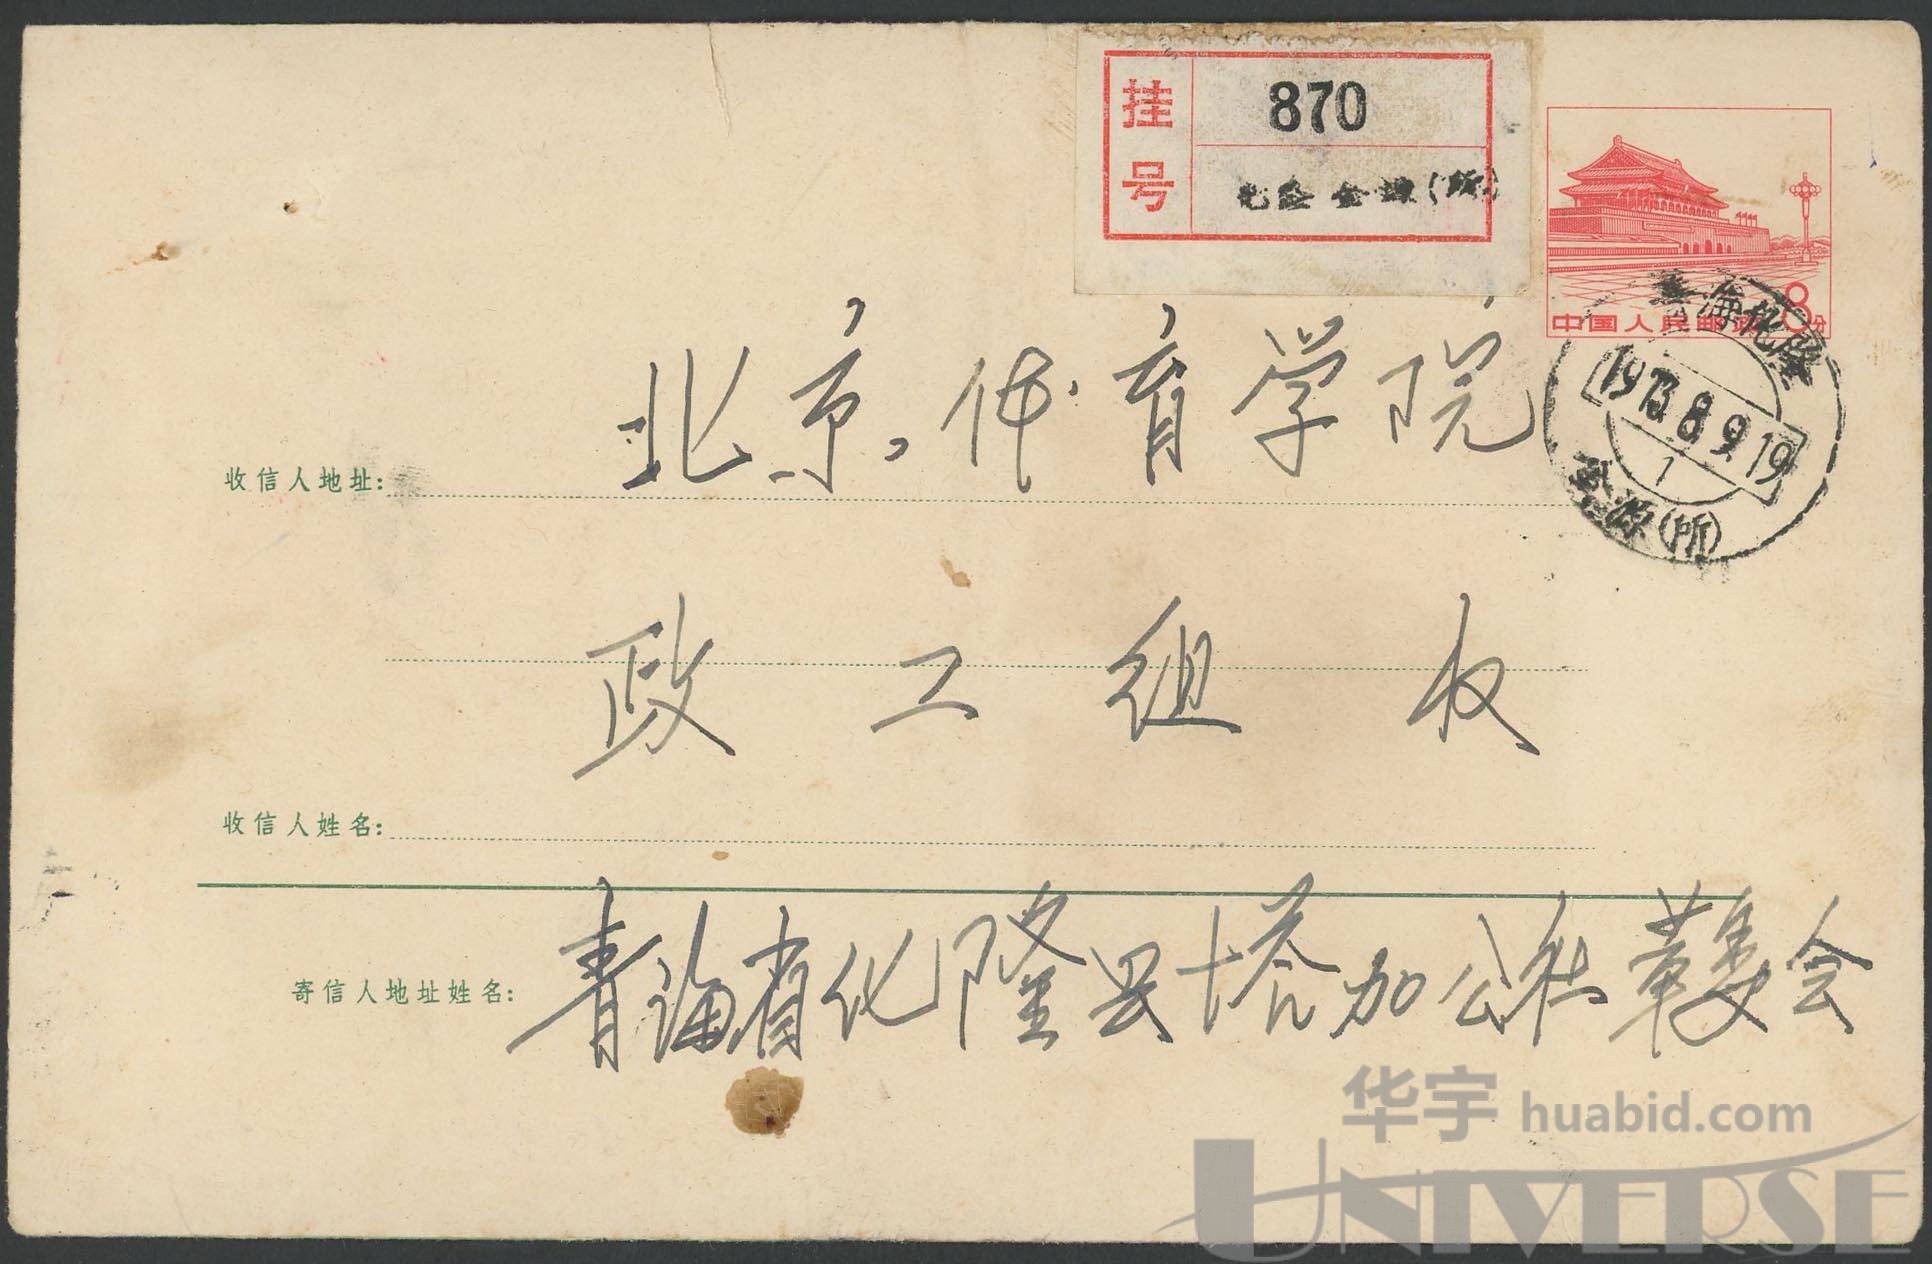 挂号
870
化隆金源(所)
中国人民邮政 8分
青海化隆
1973.8.9.19
1
金源(所)
北京体育学院
收信人地址:
政工组收
收信人姓名:
青海省化隆县塔加公社革委会
寄信人地址姓名:
华宇 huabid.com
UNIVERSE